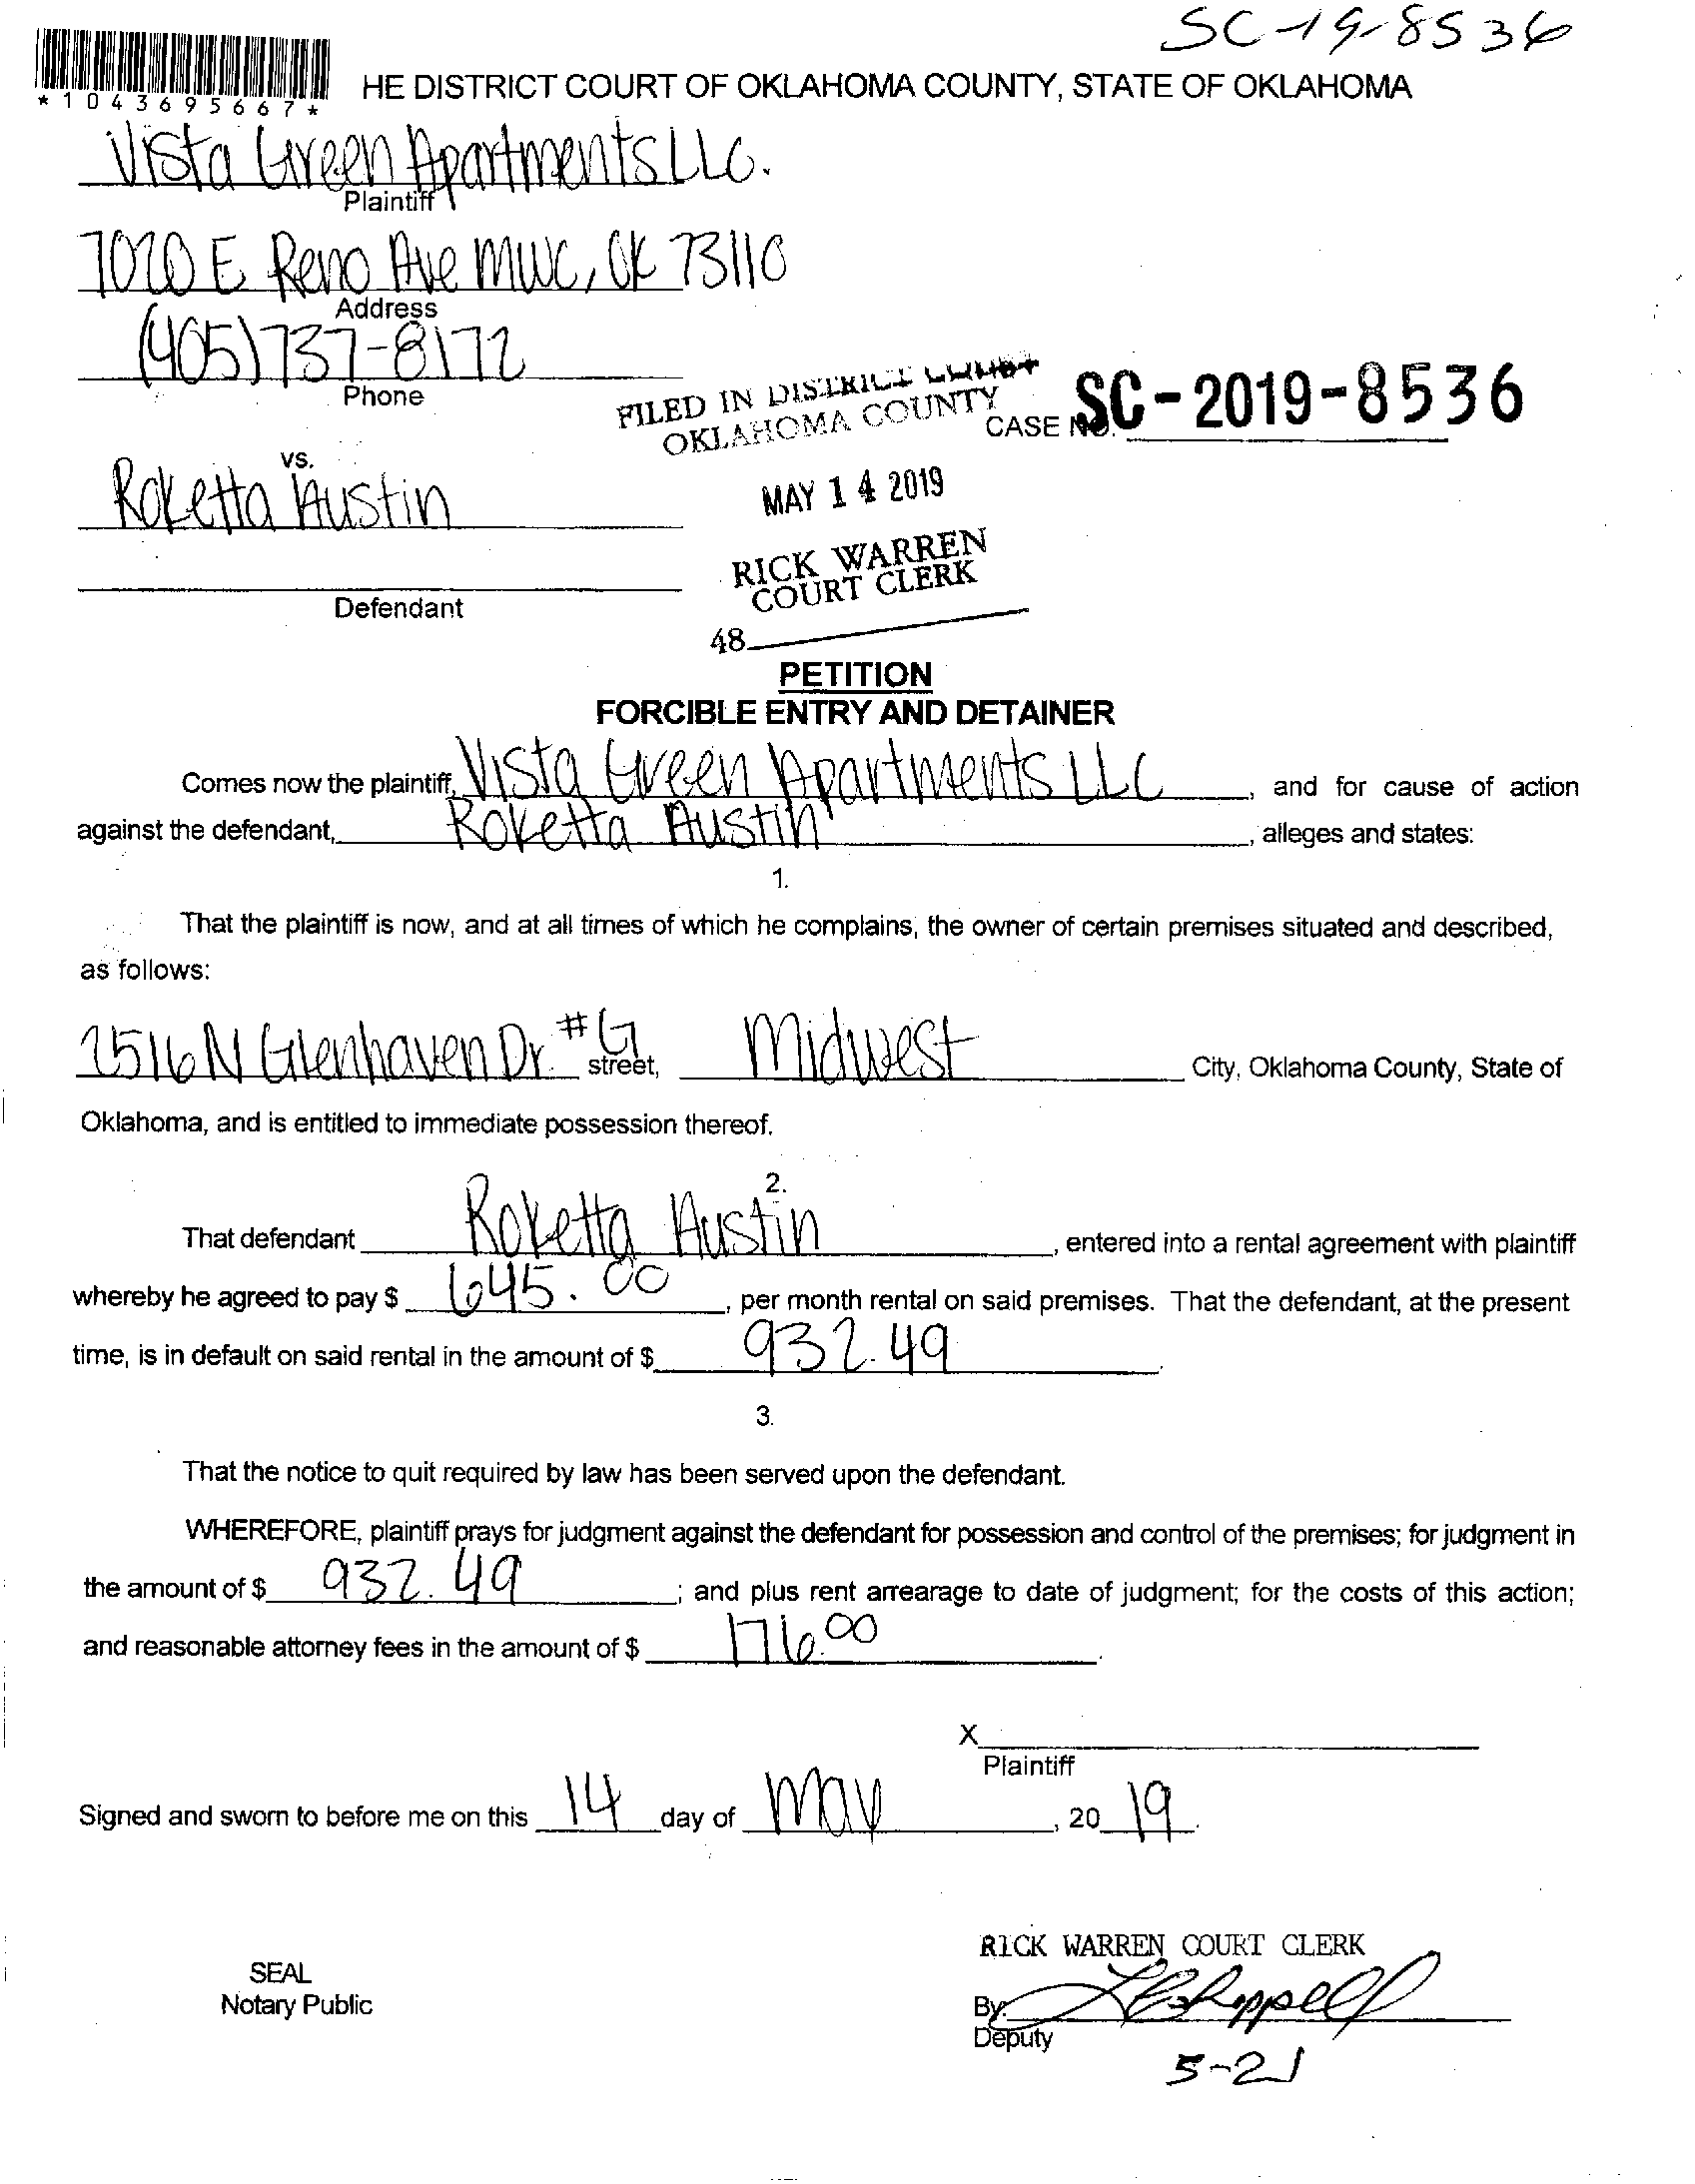 SC-19-8536
*1043695667*
HE DISTRICT COURT OF OKLAHOMA COUNTY, STATE OF OKLAHOMA
Vista Green Apartments LLC.
Plaintiff
7020 E Reno Ave MWC, OK 73110
Address
(405)737-8172
Phone
FILED IN DISTRICT COURT
OKLAHOMA COUNTY
CASE NO. SC-2019-8536
vs.
Roketta Austin
MAY 14 2019
RICK WARREN
COURT CLERK
Defendant
48
PETITION
FORCIBLE ENTRY AND DETAINER
Comes now the plaintiff, Vista Green Apartments LLC, and for cause of action
against the defendant, Roketta Austin, alleges and states:
1.
That the plaintiff is now, and at all times of which he complains, the owner of certain premises situated and described,
as follows:
2516 N Glenhaven Dr. #G street, Midwest City, Oklahoma County, State of
Oklahoma, and is entitled to immediate possession thereof.
2.
That defendant Roketta Austin, entered into a rental agreement with plaintiff
whereby he agreed to pay $ 645.00, per month rental on said premises. That the defendant, at the present
time, is in default on said rental in the amount of $ 932.49.
3.
That the notice to quit required by law has been served upon the defendant.
WHEREFORE, plaintiff prays for judgment against the defendant for possession and control of the premises; for judgment in
the amount of $ 932.49; and plus rent arrearage to date of judgment; for the costs of this action;
and reasonable attorney fees in the amount of $ 176.00.
X
Plaintiff
Signed and sworn to before me on this 14 day of May, 20 19.
RICK WARREN COURT CLERK
SEAL
Notary Public
By:
Deputy
5-21